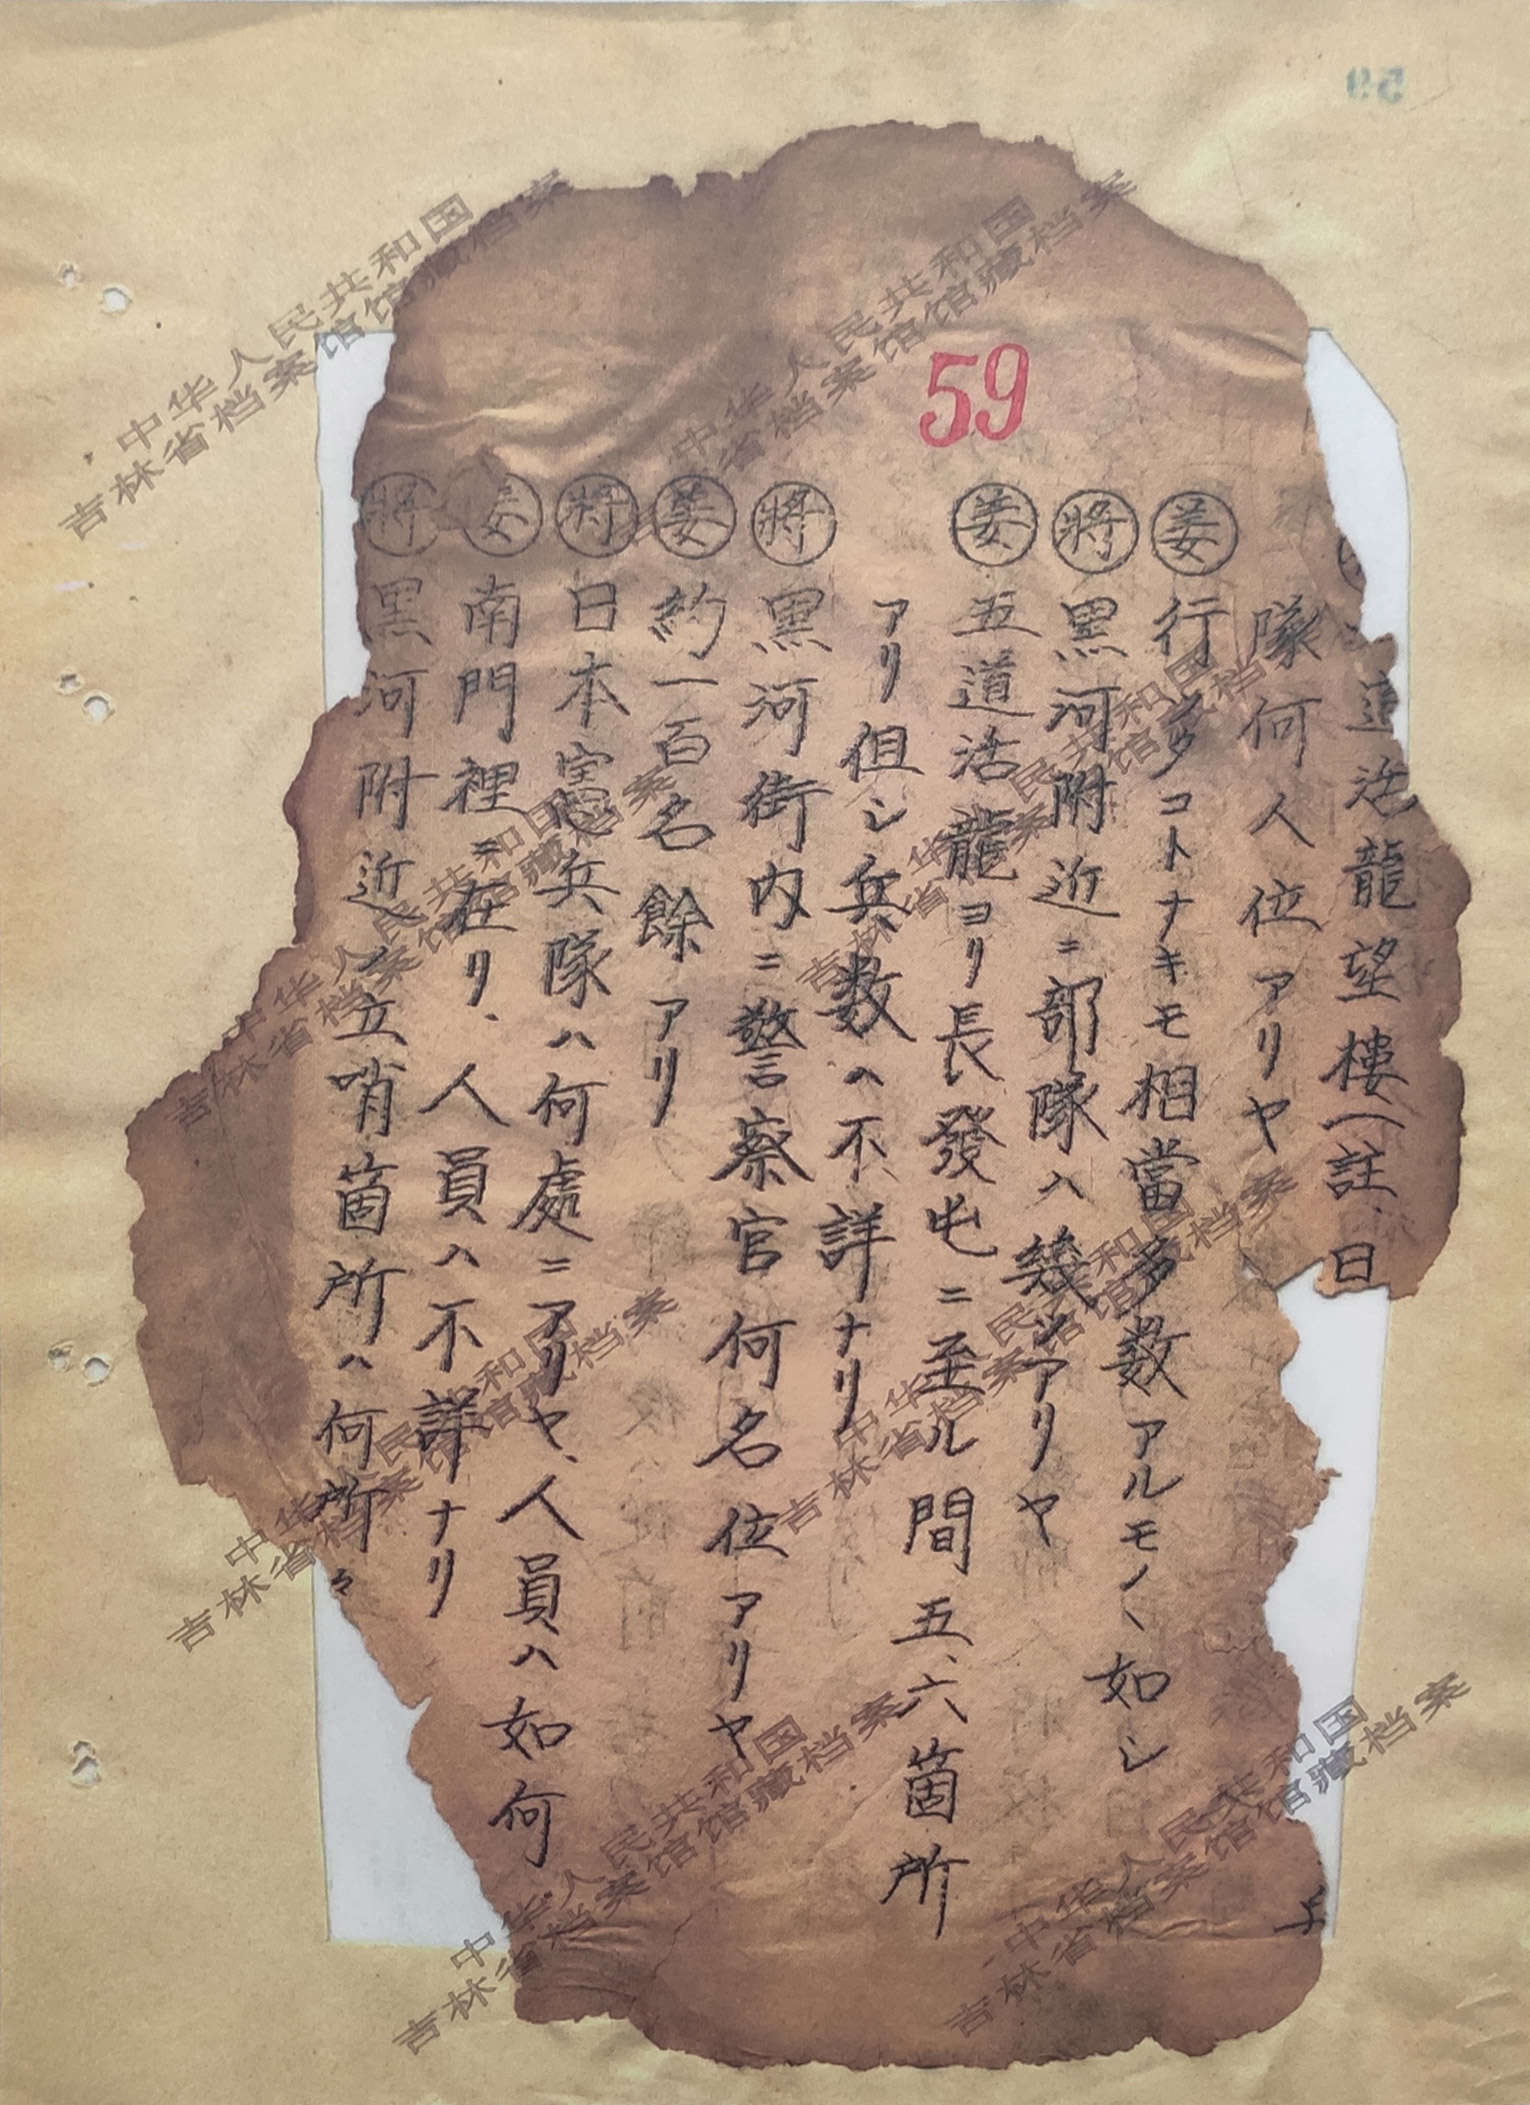 59
道活龍望樓(註、日
隊何人位アリヤ
姜 行多コトナキモ相當多数アルモノヽ如シ
將 黑河附近ニ部隊ハ幾ツアリヤ
姜 五道活龍ヨリ長發屯ニ至ル間五、六箇所
アリ但シ兵数ハ不詳ナリ
將 黑河街内ニ警察官何名位アリヤ
姜 約一百名餘アリ
將 日本憲兵隊ハ何處ニアリヤ、人員ハ如何
姜 南門裡ニ在リ、人員ハ不詳ナリ
將 黑河附近ノ立哨箇所ハ何所々
中华人民共和国
吉林省档案馆馆藏档案
中华人民共和国
吉林省档案馆馆藏档案
中华人民共和国
吉林省档案馆馆藏档案
中华人民共和国
吉林省档案馆馆藏档案
中华人民共和国
吉林省档案馆馆藏档案
中华人民共和国
吉林省档案馆馆藏档案
中华人民共和国
吉林省档案馆馆藏档案
中华人民共和国
吉林省档案馆馆藏档案